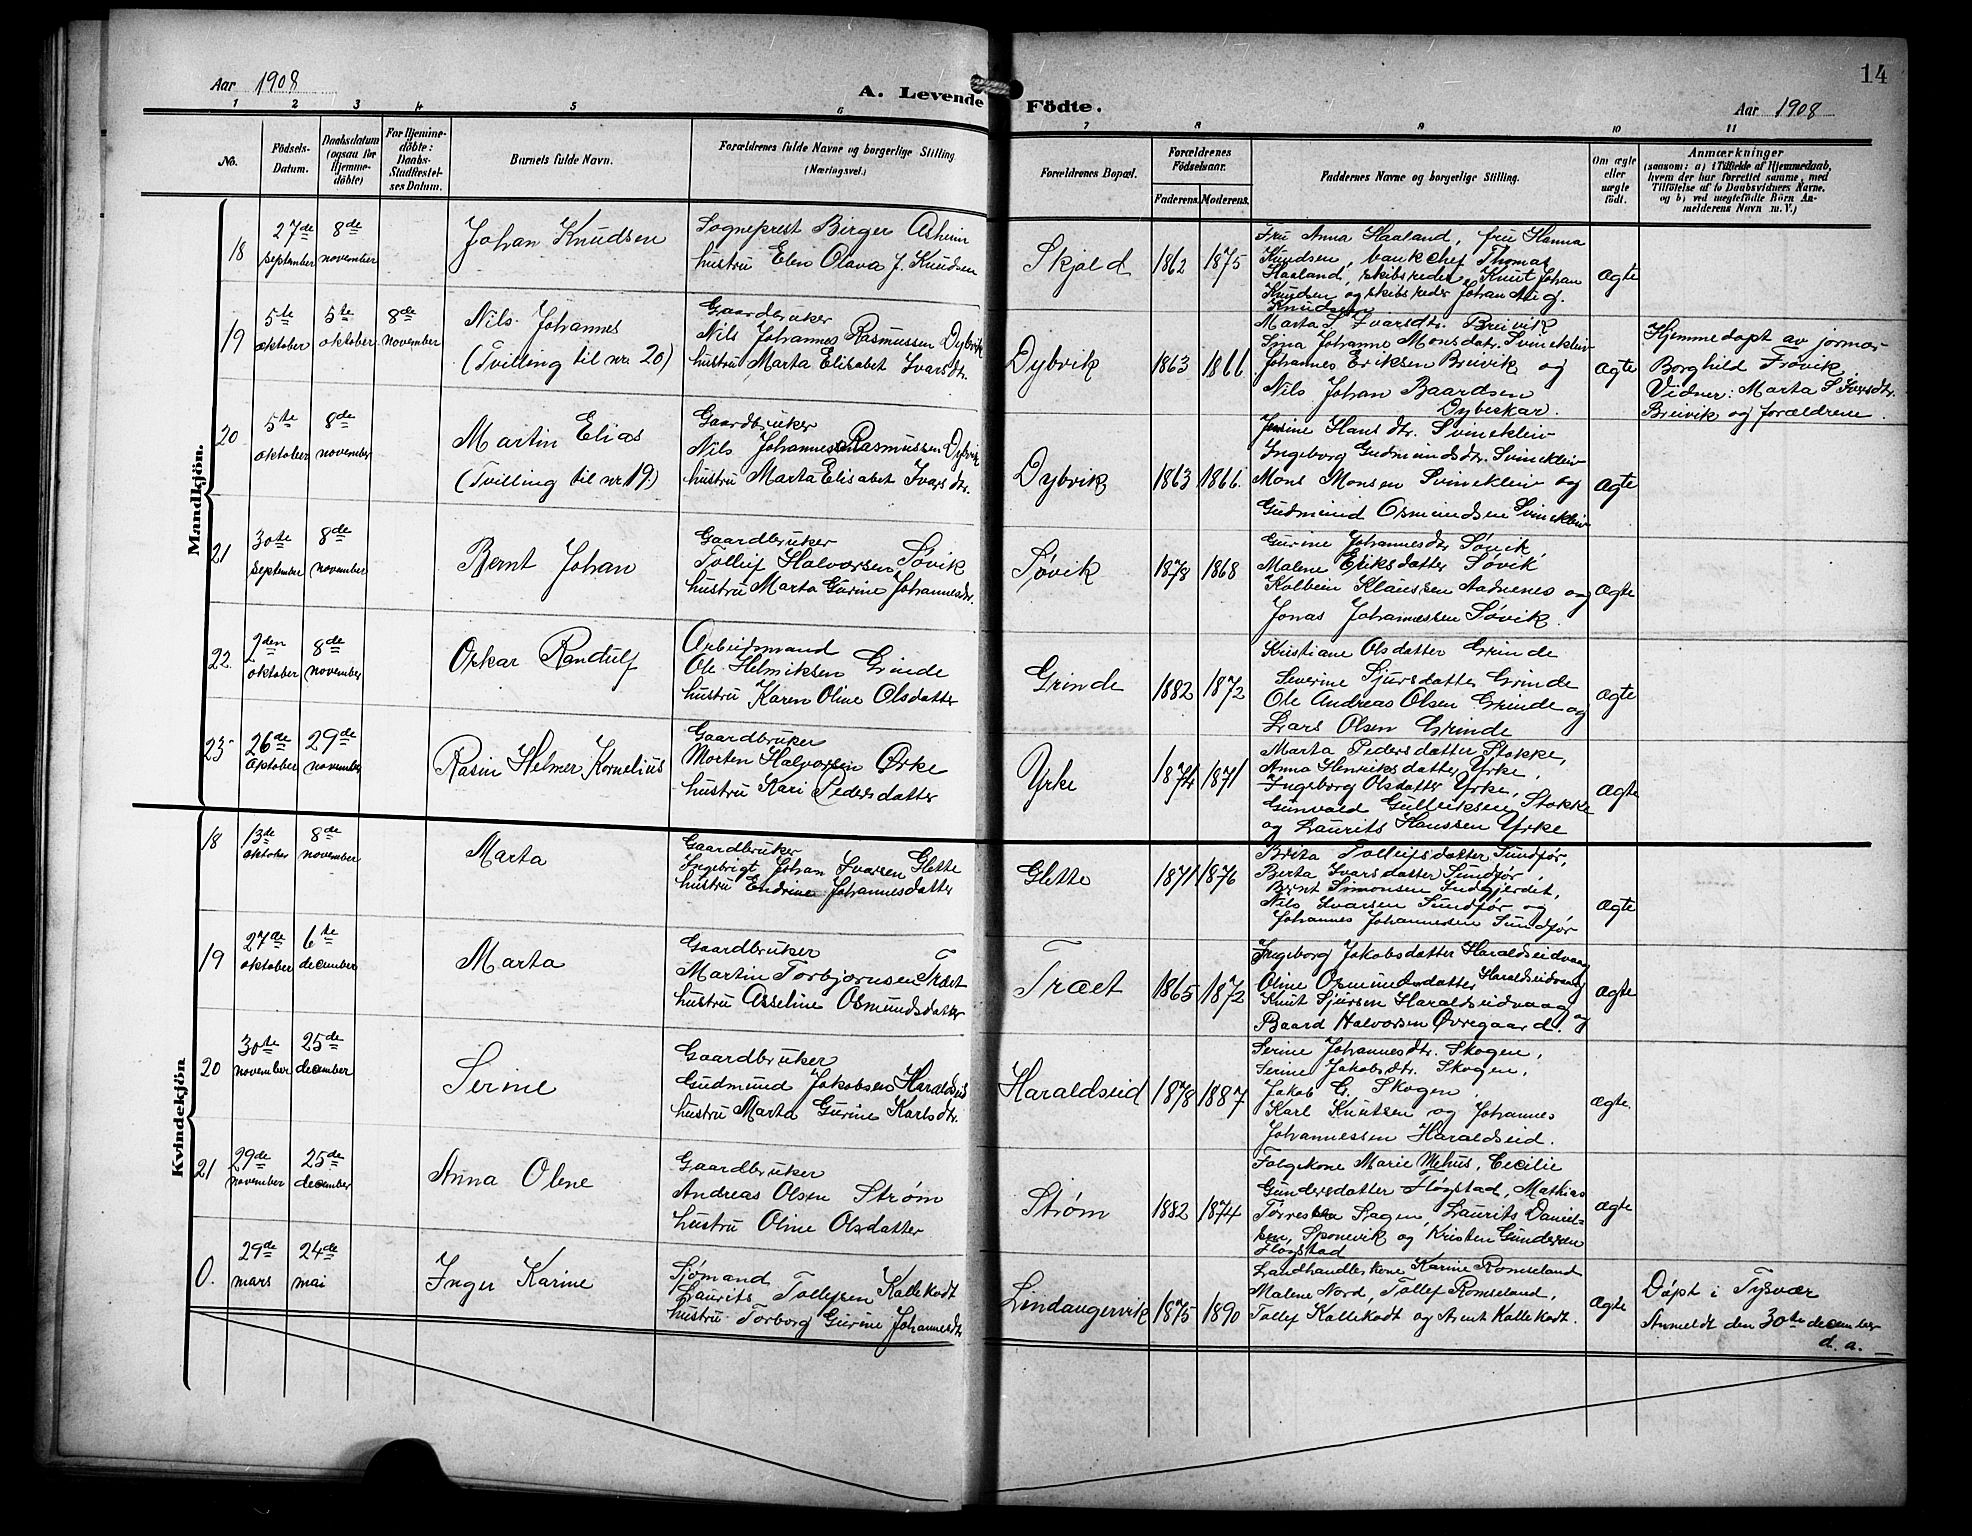 14
Aar 1908
A. Levende Födte.
Aar 1908
1 2 3 4 5 6 7 8 9 10 11
No.
Födsels-
Datum.
Daabsdatum
(ogsaa for
Hjemme-
döbte)
For Hjemme-
döbte:
Daabs-
Stadfæstel-
ses Datum.
Barnets fulde Navn.
Forældrenes fulde Navne og borgerlige Stilling
(Næringsvei.)
Forældrenes Bopæl.
Forældrenes
Födselsaar.
Faderens. Moderens.
Faddernes Navne og borgerlige Stilling.
Om ægte
eller
uægte
født.
Anmærkninger
(saasom: a) i Tilfælde af Hjemmedaab,
hvem der har forrettet samme, med
Tilföielse af to Daabsvidners Navne,
og b) ved uægtefödte Börn An-
melderens Navn m. V.)
Mandkjön.
18
27de
september
8de
november
Johan Knudsen
Sogneprest Birger Asheim
hustru Elen Olava J. Knudsen
Skjold
1862 1875
Fru Anna Haaland, fru Hanna
Knudsen, bankchef Thomas
Haaland, skibsreder Knut Johan
Knudsen og skibsreder Johan Aug.
Knudsen
ægte
19
5te
oktober
5te
oktober
8de
november
Nils Johannes
(Tvilling til nr. 20)
Gaardbruker
Nils Johannes Rasmussen Dybvik
hustru Marta Elisabet Ivarsdtr.
Dybvik
1863 1866
Marta S. Ivarsdtr. Breivik
Sina Johanne Monsdatr. Svinekleiv
Johannes Eriksen Breivik og
Nils Johan Baardsen
Dybeskar.
ægte
Hjemmedøpt av jormor
Borghild Frøvik.
Vidner: Marta S. Ivarsdtr.
Breivik og forældrene.
20
5te
oktober
8de
november
Martin Elias
(Tvilling til nr 19.)
Gaardbruker
Nils Johannes Rasmussen Dybvik
hustru Marta Elisabet Ivarsdtr.
Dybvik
1863 1866.
Hansdtr. Svinekleiv
Ingeborg Gudmundsdtr. Svinekleiv
Mons Monsen Svinekleiv og
Gudmund Osmundsen Svinekleiv
ægte
21
30te
september
8de
november
Bernt Johan
Gaardbruker
Tollef Halvorsen Søvik
hustru Marta Gurine Johannesdtr.
Søvik
1878 1868
Gurine Johannesdtr Søvik,
Malene Eriksdatter Søvik
Kolbein Klaussen Aadnenes og
Jonas Johannessen Søvik.
ægte
22.
2den
oktober
8de
november
Oskar Randulf
Arbeidsmand
Ole Helmiksen Grinde
hustru Karen Oline Olsdatter
Grinde
1882 1872
Kristiane Olsdatter Grinde
Severine Sjursdatter Grinde
Ole Andreas Olsen Grinde og
Lars Olsen Grinde
ægte
23
26de
oktober
29de
november
Rasin Helmer Kornelius
Gaardbruker
Morten Halvorsen Ørke
hustru Kari Pedersdatter
Yrke
1874 1871
Marta Pedersdatter Stokke,
Anna Henriksdatter Yrke,
Ingeborg Olsdatter Yrke,
Gunvald Gulleiksen Stokke
og Laurits Hanssen Yrke
ægte
Kvindekjön
18
13de
oktober
8de
november
Marta
Gaardbruker
Ingebrigt Johan Ivarsen Glette
hustru Endrine Johannesdatter
Glette
1871 1876
Brita Tolleifsdatter Sundfør,
Berta Ivarsdatter Sundfør,
Bernt Simonsen Indgjerdet,
Nils Ivarsen Sundfør og
Johannes Johannessen Sundfør
ægte
19
27de
oktober
6te
december
Marta
Gaardbruker
Martin Torbjørnsen Træet
hustru Asseline Osmundsdatter
Træet
1865 1872
Ingeborg Jakobsdatter Haraldseidvaag
Oline Osmundsdatter Haraldseidvaag
Knut Sjursen Haraldseidvaag og
Baard Halvorsen Øvregaard.
ægte
20
30te
november
25de
december
Serine
Gaardbruker
Gudmund Jakobsen Haraldseid
hustru Marta Gurine Karlsdtr.
Haraldseid
1878 1887
Serine Johannesdtr. Skogen,
Serine Jakobsdtr. Skogen,
Jakob G. Skogen,
Karl Knutsen og Johannes
Johannessen Haraldseid.
ægte.
21
29de
november
25de
december
Anna Olene
Gaardbruker
Andreas Olsen Strøm
hustru Oline Olsdatter
Strøm
1882 1874
Folgekone Marie Mehus, Cecilie
Gundersdatter Fløgstad, Mathias
Tørressen Sagen, Laurits Daniel-
sen, Sponevik og Kristen Gundersen
Fløgstad
ægte
0.
29de
mars
24de
mai
Inger Karine
Sjømand
Laurits Tollefsen Kallekodt
hustru Torborg Gurine Johannesdtr
Lindangervik
1875 1890
Landhandlerkone Karine Romseland
Malene Nord, Tollef Romseland,
Tollef Kallekodt og Arent Kallekodt.
ægte
Døpt i Tysvær
Anmeldt den 30te december
d. a. —